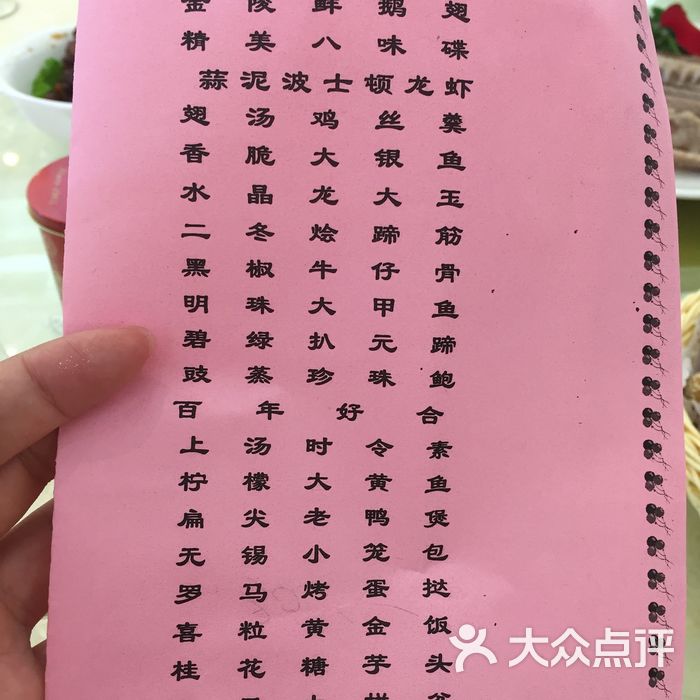 金陵鲜鹅翅
精美八味碟
蒜泥波士顿龙虾
翅汤鸡丝羹
香脆大银鱼
水晶龙大玉
二冬烩蹄筋
黑椒牛仔骨
明珠大甲鱼
碧绿扒元蹄
豉蒸珍珠鲍
百年好合
上汤时令素
柠檬大黄鱼
扁尖老鸭煲
无锡小笼包
罗马烤蛋挞
喜粒黄金饭
桂花糖芋头
大众点评